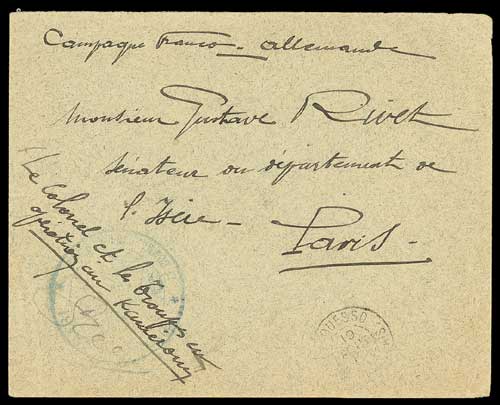 Campagne Franco-allemande
Monsieur Gustave Rivet
Sénateur du département de
l'Isère -
Paris -
Le Colonel et les troupes en
opération au Kameroun
OUESSO